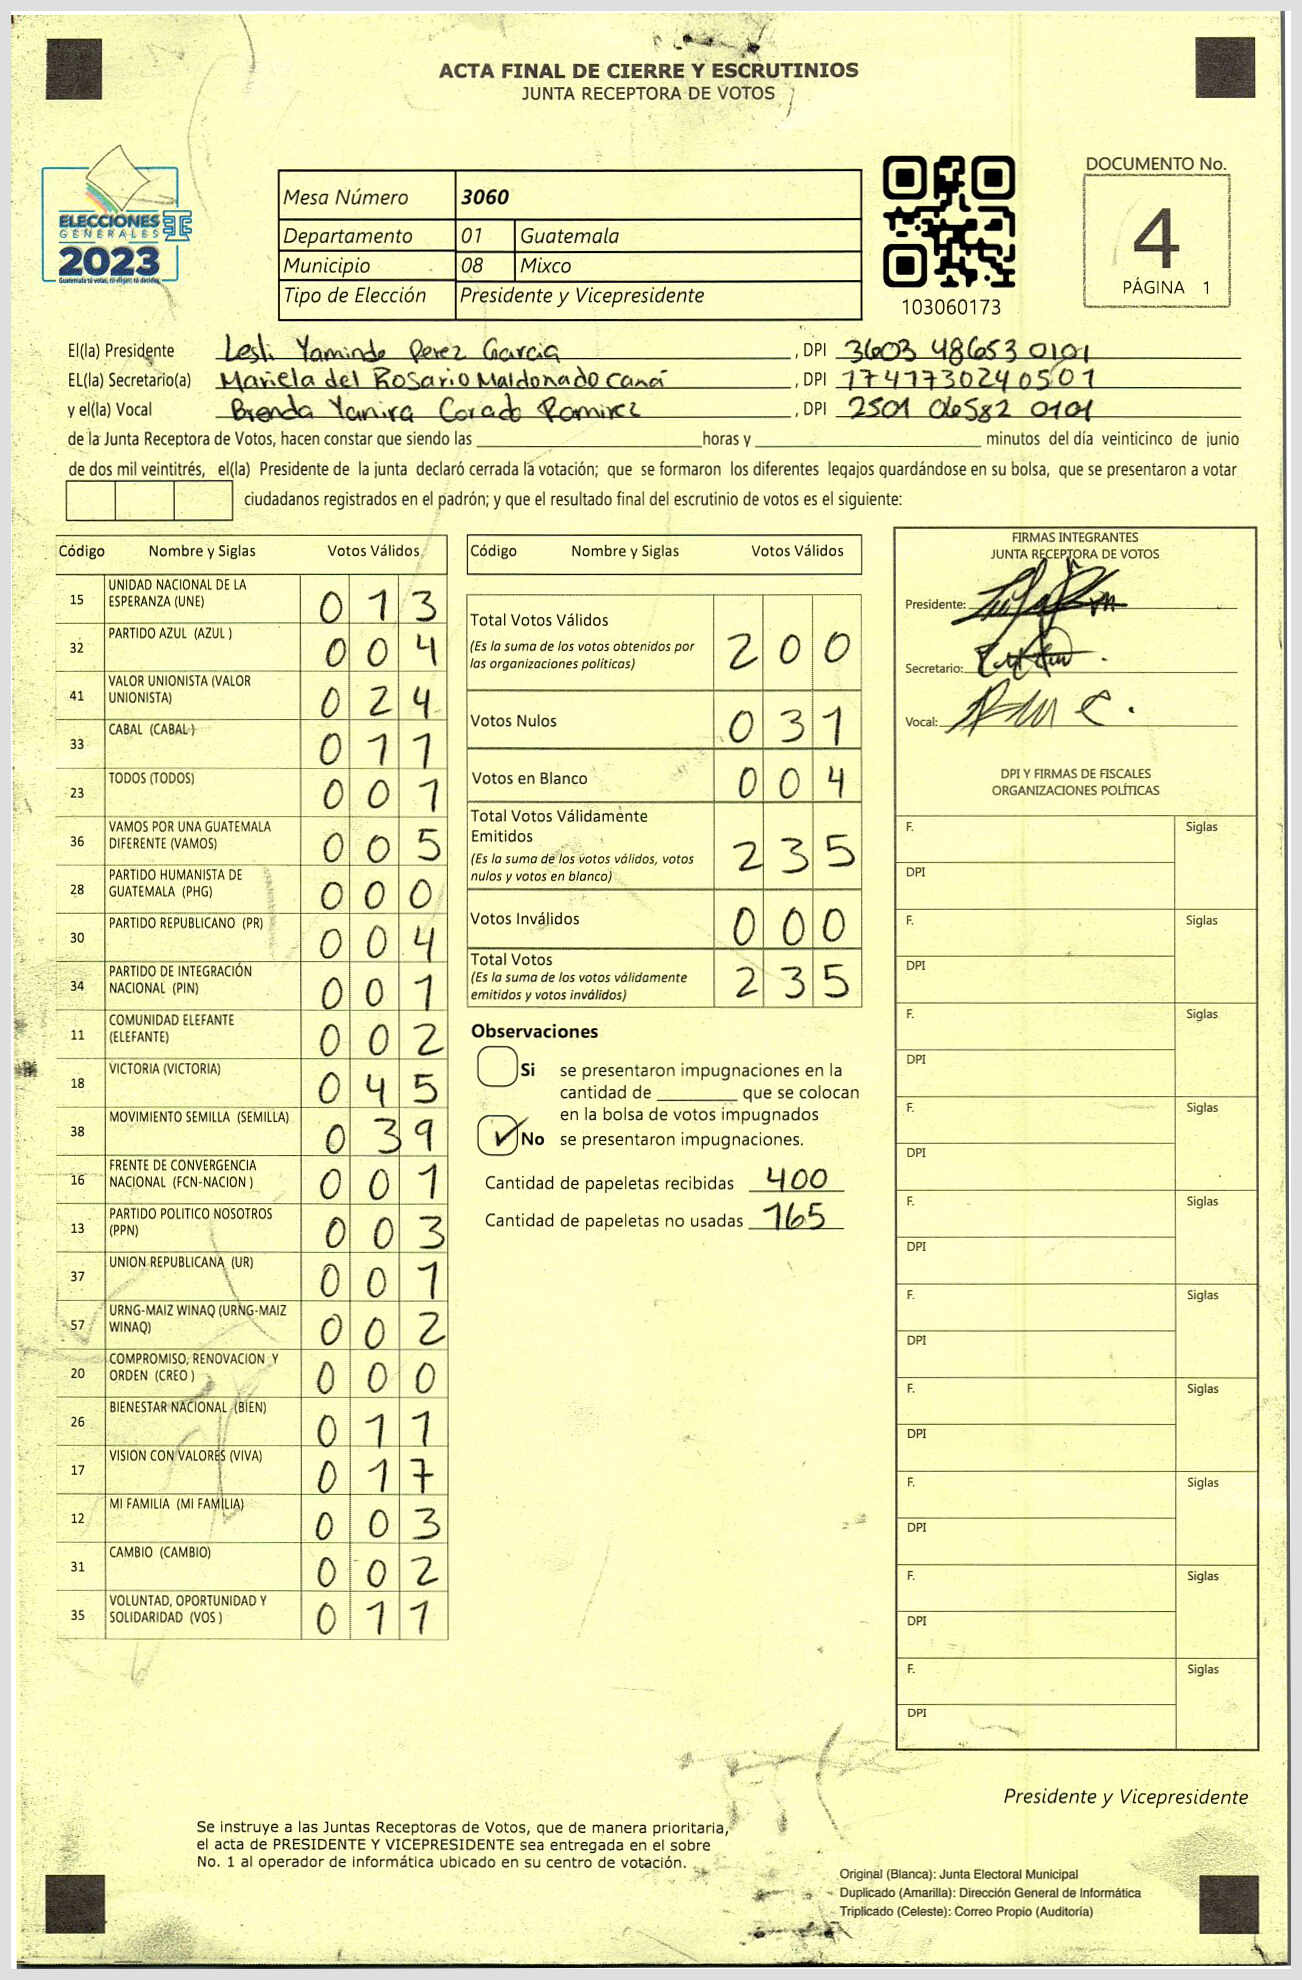 ACTA FINAL DE CIERRE Y ESCRUTINIOS
JUNTA RECEPTORA DE VOTOS
ELECCIONES
GENERALES
2023
Guatemala tú votas, tú eliges, tú decides
Mesa Número 3060
Departamento 01 Guatemala
Municipio 08 Mixco
Tipo de Elección Presidente y Vicepresidente
103060173
DOCUMENTO No.
4
PÁGINA 1
El(la) Presidente Lesli Yaminde Perez Garcia, DPI 3603 48653 0101
EL(la) Secretario(a) Mariela del Rosario Maldonado Caná, DPI 1741730240501
y el(la) Vocal Brenda Yanira Corado Ramirez, DPI 2501 06582 0101
de la Junta Receptora de Votos, hacen constar que siendo las ____ horas y ____ minutos del día veinticinco de junio
de dos mil veintitrés, el(la) Presidente de la junta declaró cerrada la votación; que se formaron los diferentes legajos guardándose en su bolsa, que se presentaron a votar
ciudadanos registrados en el padrón; y que el resultado final del escrutinio de votos es el siguiente:
Código Nombre y Siglas Votos Válidos
15 UNIDAD NACIONAL DE LA ESPERANZA (UNE) 013
32 PARTIDO AZUL (AZUL ) 004
41 VALOR UNIONISTA (VALOR UNIONISTA) 024
33 CABAL (CABAL ) 011
23 TODOS (TODOS) 001
36 VAMOS POR UNA GUATEMALA DIFERENTE (VAMOS) 005
28 PARTIDO HUMANISTA DE GUATEMALA (PHG) 000
30 PARTIDO REPUBLICANO (PR) 004
34 PARTIDO DE INTEGRACIÓN NACIONAL (PIN) 001
11 COMUNIDAD ELEFANTE (ELEFANTE) 002
18 VICTORIA (VICTORIA) 045
38 MOVIMIENTO SEMILLA (SEMILLA) 039
16 FRENTE DE CONVERGENCIA NACIONAL (FCN-NACION ) 001
13 PARTIDO POLITICO NOSOTROS (PPN) 003
37 UNION REPUBLICANA (UR) 001
57 URNG-MAIZ WINAQ (URNG-MAIZ WINAQ) 002
20 COMPROMISO, RENOVACION Y ORDEN (CREO ) 000
26 BIENESTAR NACIONAL (BIEN) 011
17 VISION CON VALORES (VIVA) 017
12 MI FAMILIA (MI FAMILIA) 003
31 CAMBIO (CAMBIO) 002
35 VOLUNTAD, OPORTUNIDAD Y SOLIDARIDAD (VOS ) 011
Código Nombre y Siglas Votos Válidos
Total Votos Válidos 200
(Es la suma de los votos obtenidos por
las organizaciones políticas)
Votos Nulos 031
Votos en Blanco 004
Total Votos Válidamente
Emitidos 235
(Es la suma de los votos válidos, votos
nulos y votos en blanco)
Votos Inválidos 000
Total Votos 235
(Es la suma de los votos válidamente
emitidos y votos inválidos)
Observaciones
Si se presentaron impugnaciones en la
cantidad de ____ que se colocan
en la bolsa de votos impugnados
✓ No se presentaron impugnaciones.
Cantidad de papeletas recibidas 400
Cantidad de papeletas no usadas 165
FIRMAS INTEGRANTES
JUNTA RECEPTORA DE VOTOS
Presidente:
Secretario:
Vocal:
DPI Y FIRMAS DE FISCALES
ORGANIZACIONES POLÍTICAS
F. Siglas
DPI
F. Siglas
DPI
F. Siglas
DPI
F. Siglas
DPI
F. Siglas
DPI
F. Siglas
DPI
F. Siglas
DPI
F. Siglas
DPI
F. Siglas
DPI
F. Siglas
DPI
Presidente y Vicepresidente
Se instruye a las Juntas Receptoras de Votos, que de manera prioritaria,
el acta de PRESIDENTE Y VICEPRESIDENTE sea entregada en el sobre
No. 1 al operador de informática ubicado en su centro de votación.
Original (Blanca): Junta Electoral Municipal
Duplicado (Amarilla): Dirección General de Informática
Triplicado (Celeste): Correo Propio (Auditoría)